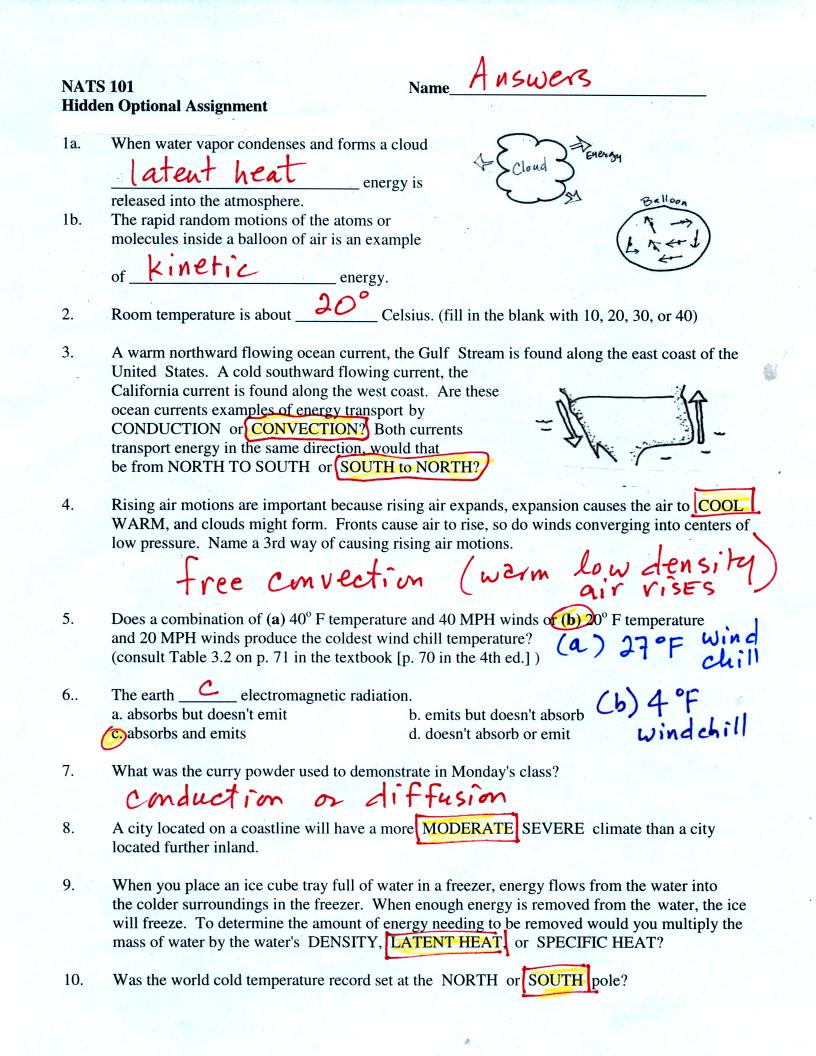 NATS 101
Name Answers
Hidden Optional Assignment
1a. When water vapor condenses and forms a cloud
latent heat energy is
released into the atmosphere.
Cloud
Energy
1b. The rapid random motions of the atoms or
molecules inside a balloon of air is an example
of kinetic energy.
Balloon
2. Room temperature is about 20° Celsius. (fill in the blank with 10, 20, 30, or 40)
3. A warm northward flowing ocean current, the Gulf Stream is found along the east coast of the
United States. A cold southward flowing current, the
California current is found along the west coast. Are these
ocean currents examples of energy transport by
CONDUCTION or CONVECTION? Both currents
transport energy in the same direction, would that
be from NORTH TO SOUTH or SOUTH to NORTH?
4. Rising air motions are important because rising air expands, expansion causes the air to COOL
WARM, and clouds might form. Fronts cause air to rise, so do winds converging into centers of
low pressure. Name a 3rd way of causing rising air motions.
free convection (warm low density
air rises)
5. Does a combination of (a) 40° F temperature and 40 MPH winds or (b) 20° F temperature
and 20 MPH winds produce the coldest wind chill temperature?
(consult Table 3.2 on p. 71 in the textbook [p. 70 in the 4th ed.] )
(a) 27°F wind
chill
(b) 4°F
windchill
6.. The earth c electromagnetic radiation.
a. absorbs but doesn't emit b. emits but doesn't absorb
c. absorbs and emits d. doesn't absorb or emit
7. What was the curry powder used to demonstrate in Monday's class?
conduction or diffusion
8. A city located on a coastline will have a more MODERATE SEVERE climate than a city
located further inland.
9. When you place an ice cube tray full of water in a freezer, energy flows from the water into
the colder surroundings in the freezer. When enough energy is removed from the water, the ice
will freeze. To determine the amount of energy needing to be removed would you multiply the
mass of water by the water's DENSITY, LATENT HEAT, or SPECIFIC HEAT?
10. Was the world cold temperature record set at the NORTH or SOUTH pole?